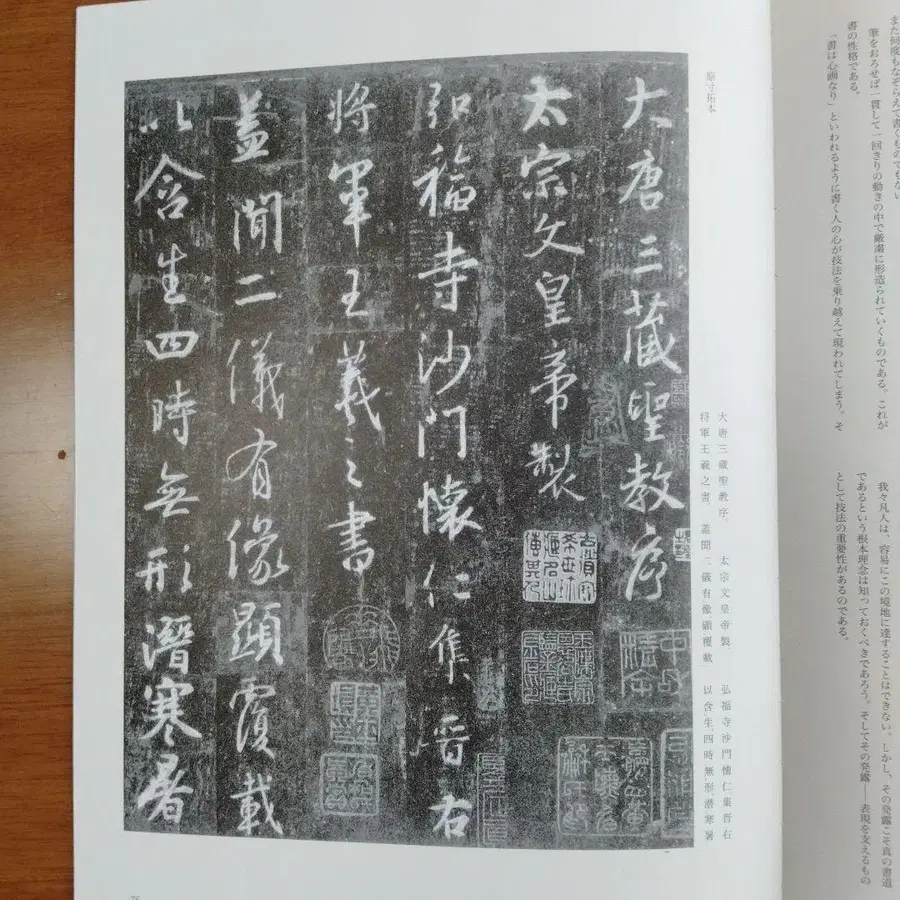 また何度もなぞらえて書くものでもない
筆をおろせば一貫して一回きりの動きの中で厳粛に形造られていくものである。これが
書の性格である。
「書は心画なり」といわれるように書く人の心が技法を乗り越えて現われてしまう。そ
我々凡人は、容易にこの境地に達することはできない。しかし、その発露こそ真の書道
であるという根本理念は知っておくべきであろう。そしてその発露――表現を支えるもの
として技法の重要性があるのである。
原寸拓本
大唐三蔵聖教序。 太宗文皇帝製。 弘福寺沙門懐仁、集晋右
将軍王羲之書。 蓋聞二儀有像顕覆載 以含生四時無形潜寒暑
大唐三藏聖教序
太宗文皇帝製
弘福寺沙門懷仁集晉右
將軍王羲之書
蓋聞二儀有像顯覆載
以含生四時無形潛寒暑